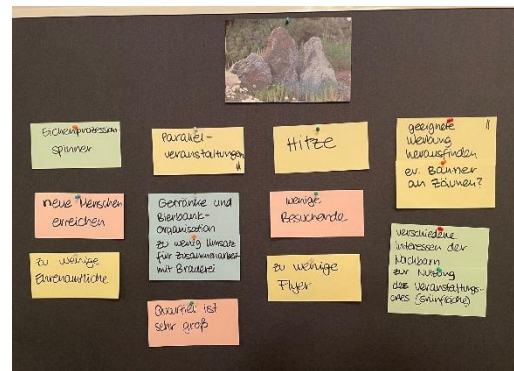 Eichenprozession
spinner
neue Menschen
erreichen
zu wenige
Ehrenamtliche
Parallel-
veranstaltungen
Getränke und
Bierbank-
organisation
zu wenig Umsatz
für Zusammenarbeit
mit Brauerei
Quartier ist
sehr groß
Hitze
wenige
Besuchende
zu wenige
Flyer
geeignete
Werbung
herausfinden
ev. Banner
an Zäunen?
verschiedene
Interessen der
Nachbarn
zur Nutzung
des Veranstaltungs-
ortes (Grünfläche)